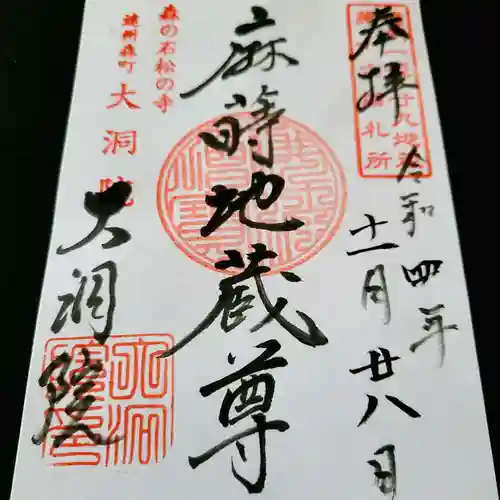 奉拝
令和四年
十一月廿八日
麻蒔地蔵尊
森の石松の寺
遠州森町 大洞院
大洞院
札所